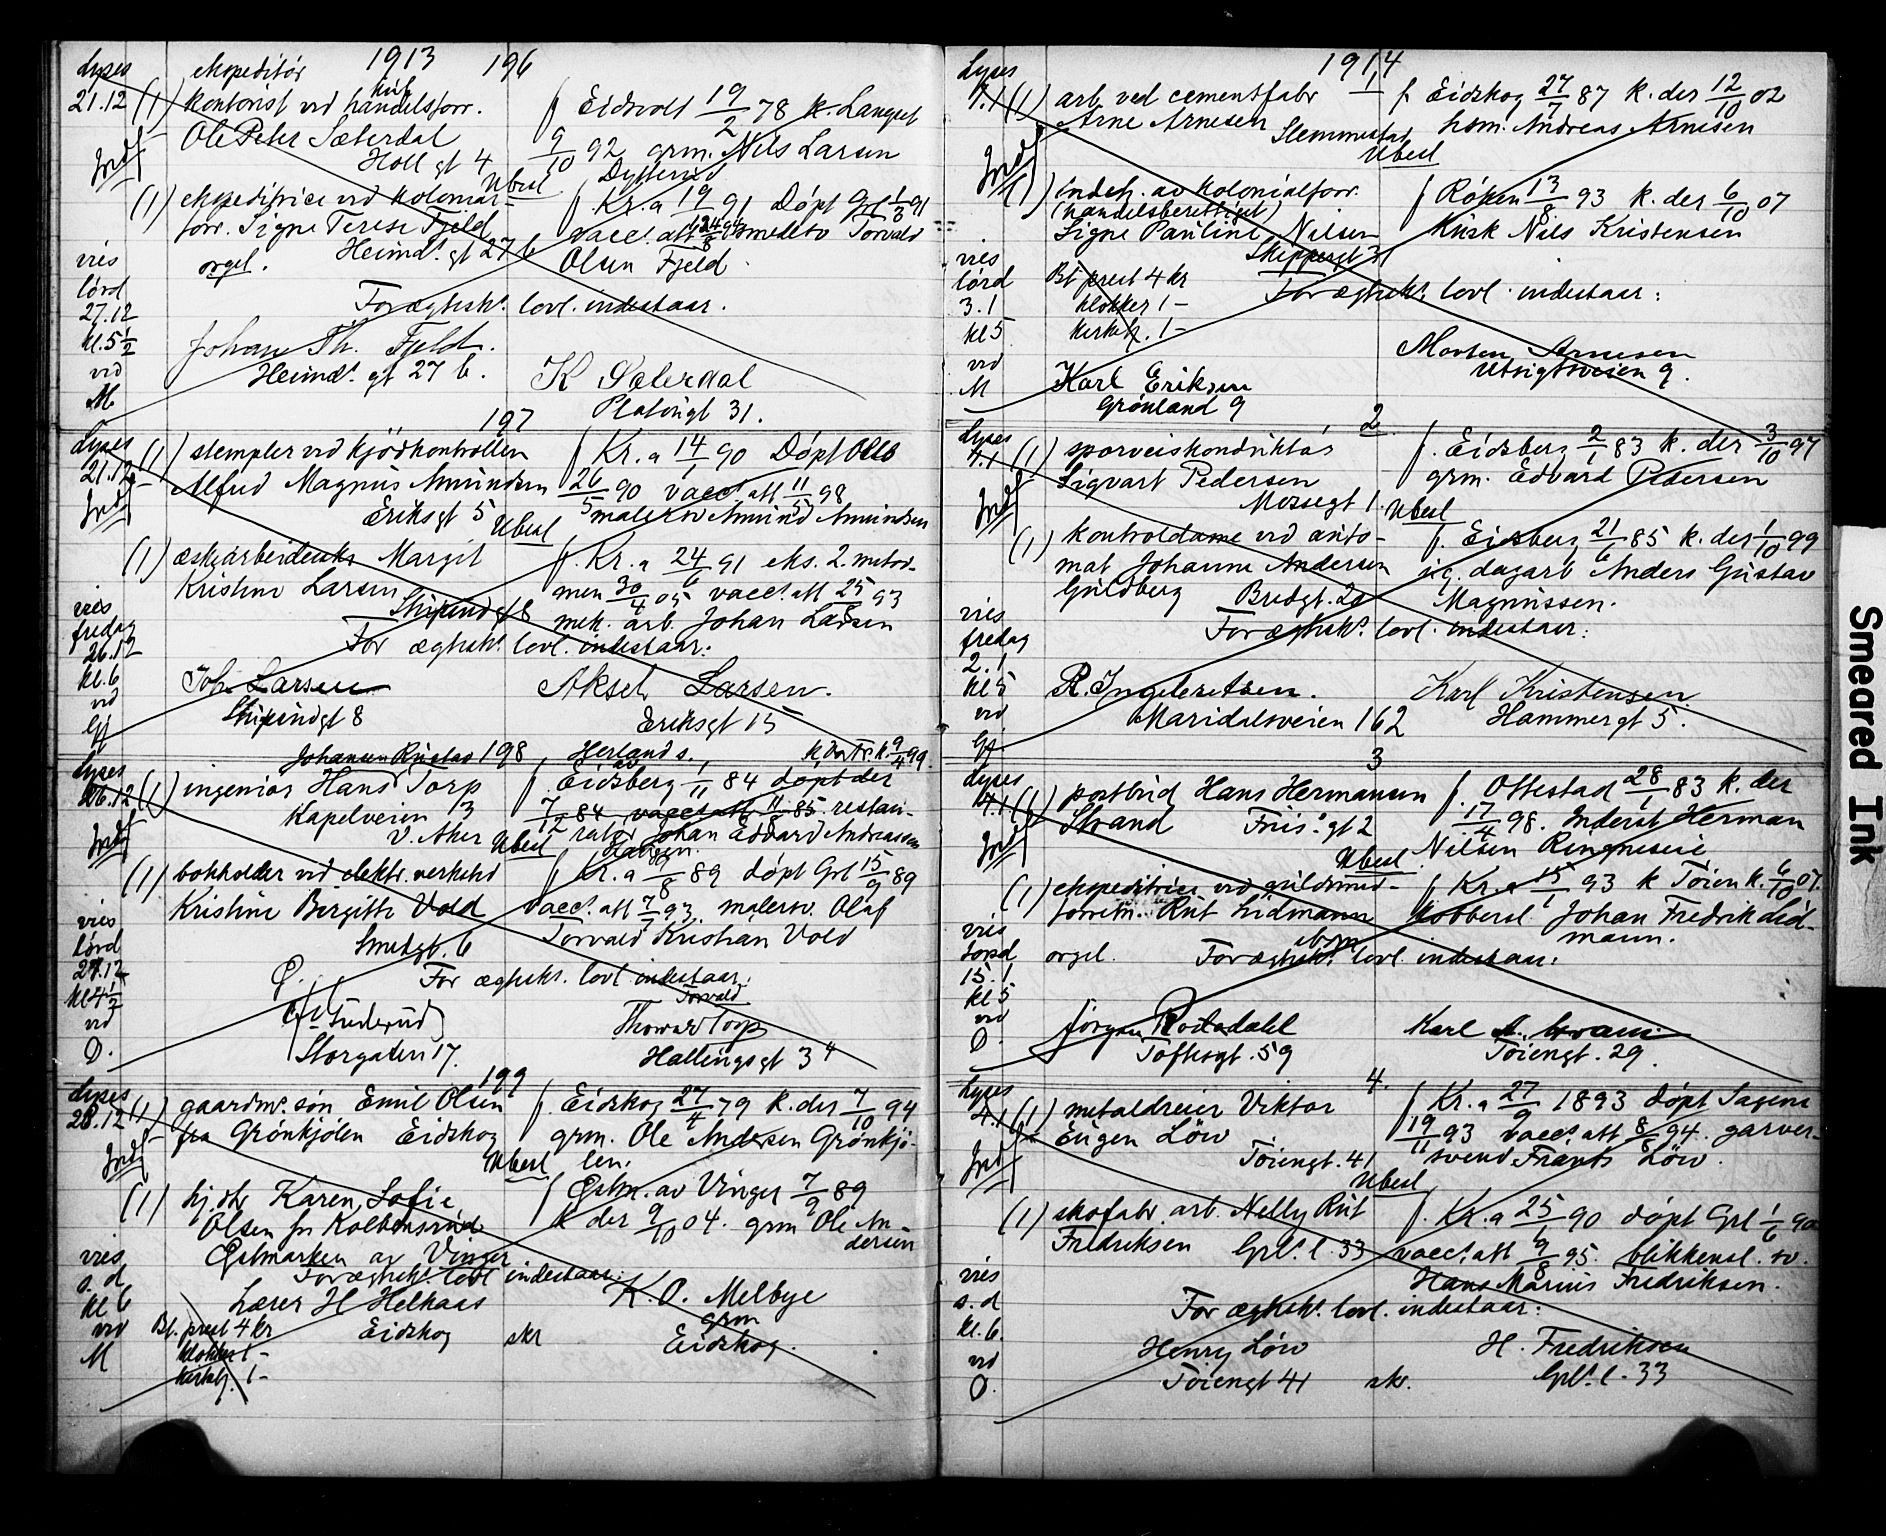 1913
196
lyses
21.12
(1) ekspeditør
kontorist ved handelsforr.
Ole Peter Sæterdal
Holl gt 4
f Eidsvold 19/2 78 k. Langset
9/10 92 grm. Nils Larsen
Ubesl
(1) ekspeditrice ved kolonial-
forr. Signe Terese Fjeld
Heimd. gt 27 b
orgel.
f Kr.a 19/1 91 Døpt Grl 1/3 91
vacc. att 24/8 94 smedsv Torvald
Olsen Fjeld
vies
lørd
27.12
kl. 5 1/2
ved
M
For ægtesk. lovl. indestaar.
Johan Th. Fjeld.
Heimd. gt 27 b.
K Sæterdal
Platougt 31.
197
lyses
21.12
(1) stempler ved kjødkontrollen
Alfred Magnus Amundsen
Eriksgt 5
f Kr.a 14/1 90 Døpt Oslo
26/5 90 vacc. att 11/5 98
malersv Amund Amundsen
Ubesl
(1) æskearbeiderske Margit
Kristine Larsen
Stupendgt 8
f. Kr.a 24/6 91 eks. 2. metod.
men 30/4 05 vacc. att 25/8 93
mek. arb. Johan Larsen
vies
fredag
26.12
kl. 6
ved
Gj
For ægtesk. lovl. indestaar:
Joh. Larsen
Stupendgt 8
Aksel Larsen.
Eriksgt 15
198
Johansen Rustad
Herland s.
lyses
26.12
(1) ingeniør Hans Torp
Kapelveien 13
V. Aker
f. Eidsberg 1/11 84 døpt der
7/12 84 vacc. att 11/8 85. restau-
ratør Johan Edvard Andreassen
Ubesl
(1) bokholder ved elektr. verksted
Kristine Birgitte Vold
Smedgt. 6
f Kr.a 8 89 døpt Grl 15/9 89
vacc. att 7/7 93. malersv. Olaf
Torvald Kristian Vold
vies
lørd
27.12
kl 4 1/2
ved
O.
For ægtesk. lovl. indestaar:
Storgaten 17.
Torvald
Thorvard Torp
Hallingsgt 3 4
199
lyses
28.12
(1) gaardm. søn Emil Olsen
fra Grønkjølen Eidskog
f. Eidskog 27/4 79 k. der 7/10 94
grm. Ole Andersen Grønkjø-
len.
Ubesl
(1) hj. dtr Karen Sofie
Olsen fra Kolbensrud
Østmarken av Vinger
f Østm. av Vinger 7/9 89
k der 9/10 04. grm Ole An-
dersen
vies
s. d
kl 6
ved
M
For ægtesk. lovl indestaar:
Lærer H Helkaas
Eidskog
skr
K. O. Melbye
grm
Eidskog.
Bt. prest 4 kr
klokker 1 -
kirketj. 1 -
1914
1
Lyses
4.1
(1) arb. ved cementfabr
Arne Arnesen
Slemmestad
f. Eidskog 27/7 87 k. der 12/10 02
hsm. Andreas Arnesen
Ubesl
(1) indeh. av kolonialforr.
(handelsberettiget)
Signe Pauline Nilsen
Skippergt 31
f Røken 13/8 93 k. der 6/10 07
kusk Nils Kristensen
vies
lørd
3.1
kl 5
ved
M
Bt prest 4 kr
klokker 1 -
kirketj. 1 -
For ægtesk. lovl. indestaar:
Karl Eriksen
Grønland 9
Morten Arnesen
Utsigtsveien 9.
2.
Lyses
4.1
(1) sporveiskonduktør
Sigvart Pedersen
Mossegt 1.
f. Eidsberg 2/1 83 k. der 3/10 97
grm. Edvard Pedersen
Ubesl
(1) kontroldame ved auto-
mat Johanne Andersen
Guldberg
Bredgt. 20
f. Eidsberg 21/6 85 k. der 1/10 99
dagarb Anders Gustav
Magnussen.
vies
fredag
2.1
kl 5
ved
Gj
For ægtesk. lovl. indestaar:
R. Ingebretsen.
Maridalsveien 162
Karl Kristensen
Hammergt 5.
3
Lyses
4.1
(1) postbud Hans Hermansen
Strand
Friis. gt 2
f. Ottestad 28/1 83 k. der
17/4 98. Inderst Herman
Nilsen Ringneseie
Ubesl
(1) ekspeditrice ved guldsmed-
forretn. Rut Lidmann
f Kr.a 15/1 93 k Tøien k. 6/10 07.
kobbersl. Johan Fredrik Lid-
mann.
vies
torsd
15.1
kl 5
ved
O.
orgel.
For ægtesk. lovl. indestaar:
Jørgen Rodsdahl
Toftesgt. 59
Karl A.
Tøiengt. 29
4.
Lyses
4.1
(1) metaldreier Viktor
Eugen Löw
Tøiengt. 41
f. Kr.a 27/9 1893 døpt Sagene
19/11 93 vacc. att 8/8 94. garver-
svend Frants Löw.
Ubesl
(1) skofabr. arb. Nelly Rut
Fredriksen
Grl. l. 33
f. Kr.a 25/1 90 døpt Grl 1/6 90
vacc. att 9/8 95. blikkensl. sv.
Hans Marius Fredriksen.
vies
s. d
kl. 6
ved
O.
For ægtesk. lovl. indestaar:
Henry Löw
Tøiengt 41
skr.
H. Fredriksen
Grl. l. 33
Smeared Ink